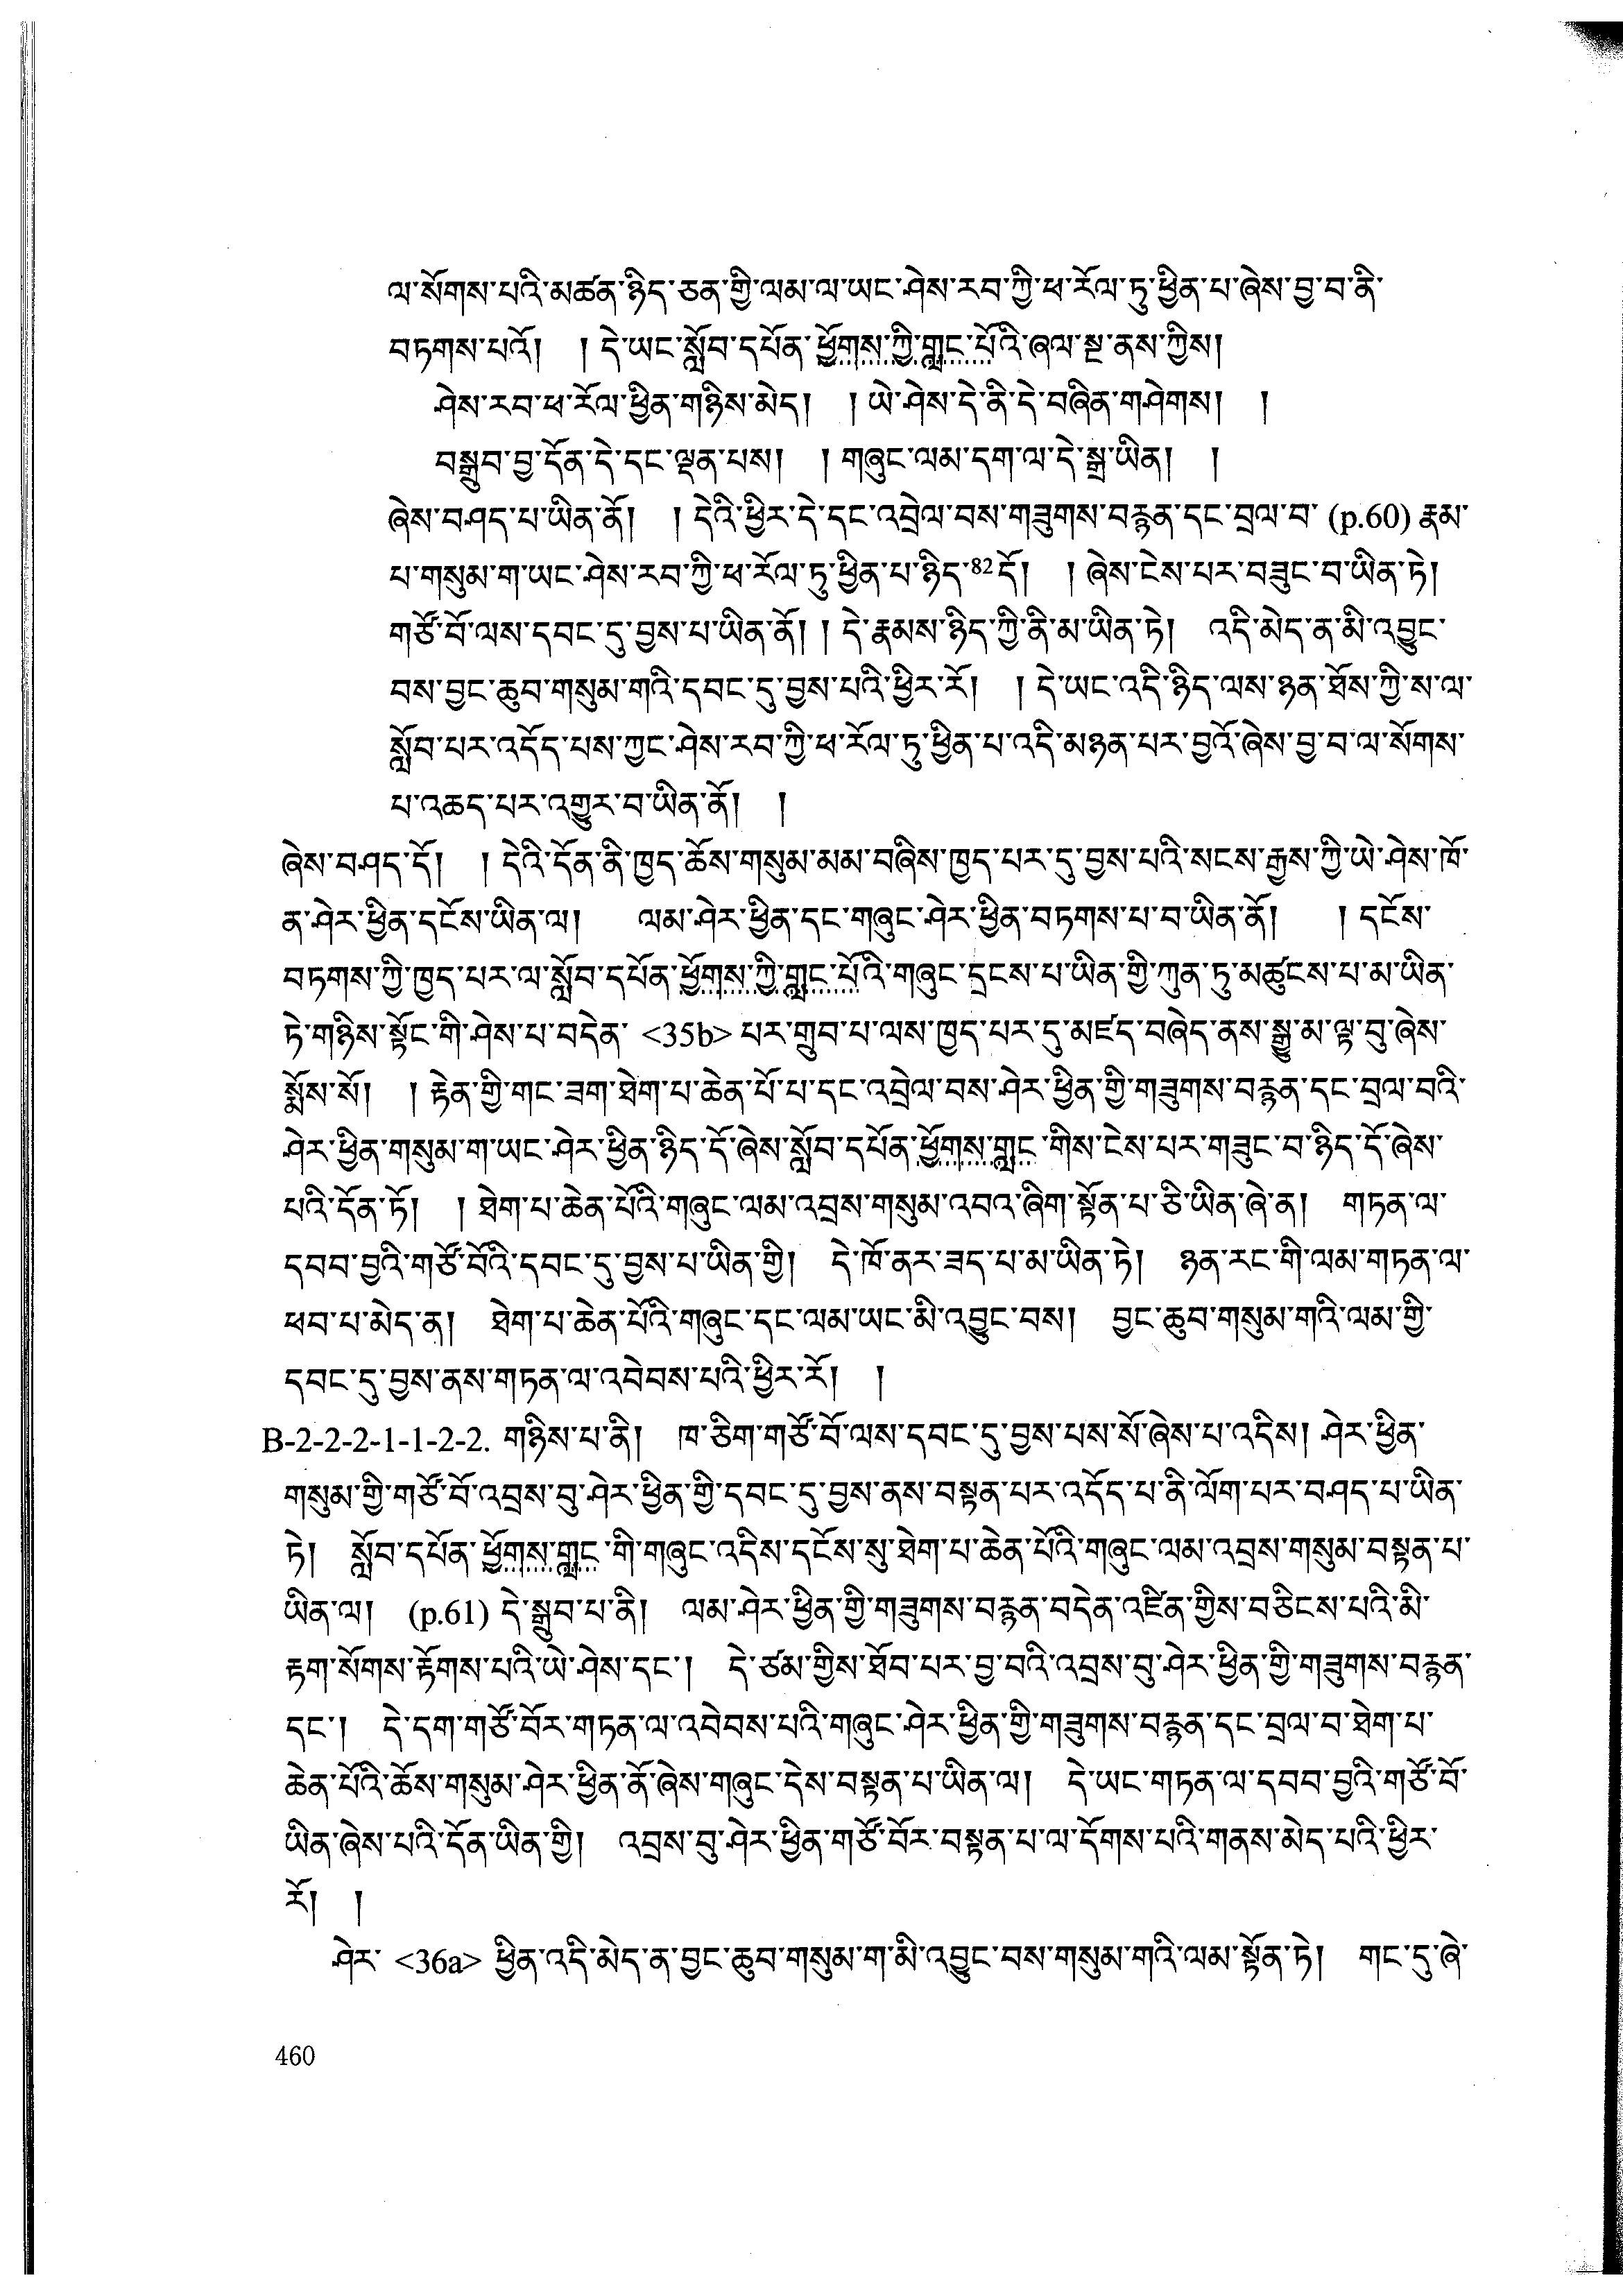 ལ་སོགས་པའི་མཚན་ཉིད་ཅན་གྱི་ལམ་ལ་ཡང་ཤེས་རབ་ཀྱི་ཕ་རོལ་ཏུ་ཕྱིན་པ་ཞེས་བྱ་བ་ནི་
བཏགས་པའོ། །དེ་ཡང་སློབ་དཔོན་ཕྱོགས་ཀྱི་གླང་པོའི་ཞལ་སྔ་ནས་ཀྱིས།
ཤེས་རབ་ཕ་རོལ་ཕྱིན་གཉིས་མེད། །ཡེ་ཤེས་དེ་ནི་དེ་བཞིན་གཤེགས། །
བསྒྲུབ་བྱ་དོན་དེ་དང་ལྡན་པས། །གཞུང་ལམ་དག་ལ་དེ་སྒྲ་ཡིན། །
ཞེས་བཤད་པ་ཡིན་ནོ། །དེའི་ཕྱིར་དེ་དང་འབྲེལ་བས་གཟུགས་བརྙན་དང་བྲལ་བ་ (p.60) རྣམ་
པ་གསུམ་ག་ཡང་ཤེས་རབ་ཀྱི་ཕ་རོལ་ཏུ་ཕྱིན་པ་ཉིད་82དོ། །ཞེས་ངེས་པར་བཟུང་བ་ཡིན་ཏེ།
གཙོ་བོ་ལས་དབང་དུ་བྱས་པ་ཡིན་ནོ། །དེ་རྣམས་ཉིད་ཀྱི་ནི་མ་ཡིན་ཏེ། འདི་མེད་ན་མི་འབྱུང་
བས་བྱང་ཆུབ་གསུམ་གའི་དབང་དུ་བྱས་པའི་ཕྱིར་རོ། །དེ་ཡང་འདི་ཉིད་ལས་ཉན་ཐོས་ཀྱི་ས་ལ་
སློབ་པར་འདོད་པས་ཀྱང་ཤེས་རབ་ཀྱི་ཕ་རོལ་ཏུ་ཕྱིན་པ་འདི་མཉན་པར་བྱའོ་ཞེས་བྱ་བ་ལ་སོགས་
པ་འཆད་པར་འགྱུར་བ་ཡིན་ནོ། །
ཞེས་བཤད་དོ། །དེའི་དོན་ནི་ཁྱད་ཆོས་གསུམ་མམ་བཞིས་ཁྱད་པར་དུ་བྱས་པའི་སངས་རྒྱས་ཀྱི་ཡེ་ཤེས་ཁོ་
ན་ཤེར་ཕྱིན་དངོས་ཡིན་ལ། ལམ་ཤེར་ཕྱིན་དང་གཞུང་ཤེར་ཕྱིན་བཏགས་པ་བ་ཡིན་ནོ། །དངོས་
བཏགས་ཀྱི་ཁྱད་པར་ལ་སློབ་དཔོན་ཕྱོགས་ཀྱི་གླང་པོའི་གཞུང་དྲངས་པ་ཡིན་གྱི་ཀུན་ཏུ་མཚུངས་པ་མ་ཡིན་
ཏེ་གཉིས་སྟོང་གི་ཤེས་པ་བདེན་ <35b> པར་གྲུབ་པ་ལས་ཁྱད་པར་དུ་མཛད་བཞེད་ནས་སྒྱུ་མ་ལྟ་བུ་ཞེས་
སྨོས་སོ། །རྟེན་གྱི་གང་ཟག་ཐེག་པ་ཆེན་པོ་པ་དང་འབྲེལ་བས་ཤེར་ཕྱིན་གྱི་གཟུགས་བརྙན་དང་བྲལ་བའི་
ཤེར་ཕྱིན་གསུམ་ག་ཡང་ཤེར་ཕྱིན་ཉིད་དོ་ཞེས་སློབ་དཔོན་ཕྱོགས་གླང་གིས་ངེས་པར་གཟུང་བ་ཉིད་དོ་ཞེས་
པའི་དོན་ཏོ། །ཐེག་པ་ཆེན་པོའི་གཞུང་ལམ་འབྲས་གསུམ་འབའ་ཞིག་སྟོན་པ་ཅི་ཡིན་ཞེ་ན། གཏན་ལ་
དབབ་བྱའི་གཙོ་བོའི་དབང་དུ་བྱས་པ་ཡིན་གྱི། དེ་ཁོ་ནར་ཟད་པ་མ་ཡིན་ཏེ། ཉན་རང་གི་ལམ་གཏན་ལ་
ཕབ་པ་མེད་ན། ཐེག་པ་ཆེན་པོའི་གཞུང་དང་ལམ་ཡང་མི་འབྱུང་བས། བྱང་ཆུབ་གསུམ་གའི་ལམ་གྱི་
དབང་དུ་བྱས་ནས་གཏན་ལ་འབེབས་པའི་ཕྱིར་རོ། །
B-2-2-2-1-1-2-2. གཉིས་པ་ནི། ཁ་ཅིག་གཙོ་བོ་ལས་དབང་དུ་བྱས་པས་སོ་ཞེས་པ་འདིས། ཤེར་ཕྱིན་
གསུམ་གྱི་གཙོ་བོ་འབྲས་བུ་ཤེར་ཕྱིན་གྱི་དབང་དུ་བྱས་ནས་བསྟན་པར་འདོད་པ་ནི་ལོག་པར་བཤད་པ་ཡིན་
ཏེ། སློབ་དཔོན་ཕྱོགས་གླང་གི་གཞུང་འདིས་དངོས་སུ་ཐེག་པ་ཆེན་པོའི་གཞུང་ལམ་འབྲས་གསུམ་བསྟན་པ་
ཡིན་ལ། (p.61) དེ་སྒྲུབ་པ་ནི། ལམ་ཤེར་ཕྱིན་གྱི་གཟུགས་བརྙན་བདེན་འཛིན་གྱིས་བཅིངས་པའི་མི་
རྟག་སོགས་རྟོགས་པའི་ཡེ་ཤེས་དང་། དེ་ཙམ་གྱིས་ཐོབ་པར་བྱ་བའི་འབྲས་བུ་ཤེར་ཕྱིན་གྱི་གཟུགས་བརྙན་
དང་། དེ་དག་གཙོ་བོར་གཏན་ལ་འབེབས་པའི་གཞུང་ཤེར་ཕྱིན་གྱི་གཟུགས་བརྙན་དང་བྲལ་བ་ཐེག་པ་
ཆེན་པོའི་ཆོས་གསུམ་ཤེར་ཕྱིན་ནོ་ཞེས་གཞུང་དེས་བསྟན་པ་ཡིན་ལ། དེ་ཡང་གཏན་ལ་དབབ་བྱའི་གཙོ་བོ་
ཡིན་ཞེས་པའི་དོན་ཡིན་གྱི། འབྲས་བུ་ཤེར་ཕྱིན་གཙོ་བོར་བསྟན་པ་ལ་དོགས་པའི་གནས་མེད་པའི་ཕྱིར་
རོ། །
ཤེར་ <36a> ཕྱིན་འདི་མེད་ན་བྱང་ཆུབ་གསུམ་ག་མི་འབྱུང་བས་གསུམ་གའི་ལམ་སྟོན་ཏེ། གང་དུ་ཞེ་
460